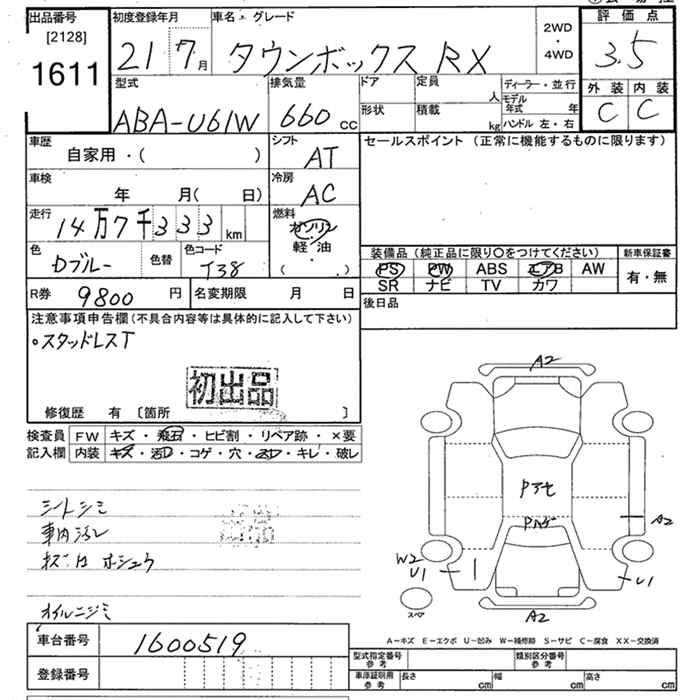 出品番号 初度登録年月 車名・グレード 評価点
[2128]
1611 21 7月 タウンボックス RX 2WD・4WD 3.5
型式 排気量 ドア 定員 人 ディーラー・並行 外装 内装
ABA-U61W 660cc 形状 積載 kg モデル年式 年 ハンドル 左・右 C C
車歴 シフト セールスポイント (正常に機能するものに限ります)
自家用・( ) AT
車検 冷房
年 月( 日) AC
走行 燃料
14万7千333km ガソリン
軽・油
色 色替 色コード ( . ) 装備品 (純正品に限り〇をつけてください) 新車保証書
Dブルー T38 PS PW ABS エアB AW 有・無
SR ナビ TV カワ
R券 9800円 名変期限 月 日 後日品
注意事項申告欄 (不具合内容等は具体的に記入して下さい)
・スタッドレスT
初出品
修復歴 有 [箇所 ]
A2
検査員 FW キズ・飛石・ヒビ割・リペア跡・×要
記入欄 内装 キズ・コゲ・穴・キレ・破レ
シートシミ
車内
A2
W2
U1 U1
スペア
オイルニジミ
A2
車台番号 1600519
A-キズ E-エクボ U-凹み W-補修跡 S-サビ C-腐食 XX-交換済
登録番号 型式指定番号 参考 類別区分番号 参考
車庫証明用 参考 長さ cm 幅 cm 高さ cm